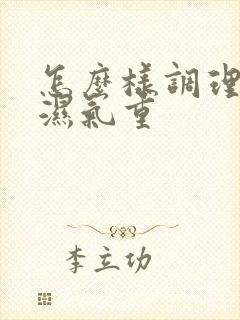 怎麽樣調理
濕氣重
李立功